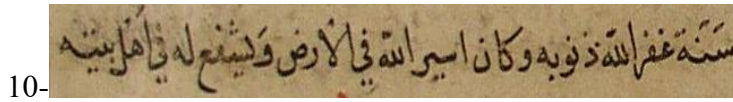 10- سَنَة غفر الله ذنوبه وكان اسير الله في الارض وَيشفع له في اَهل بيته